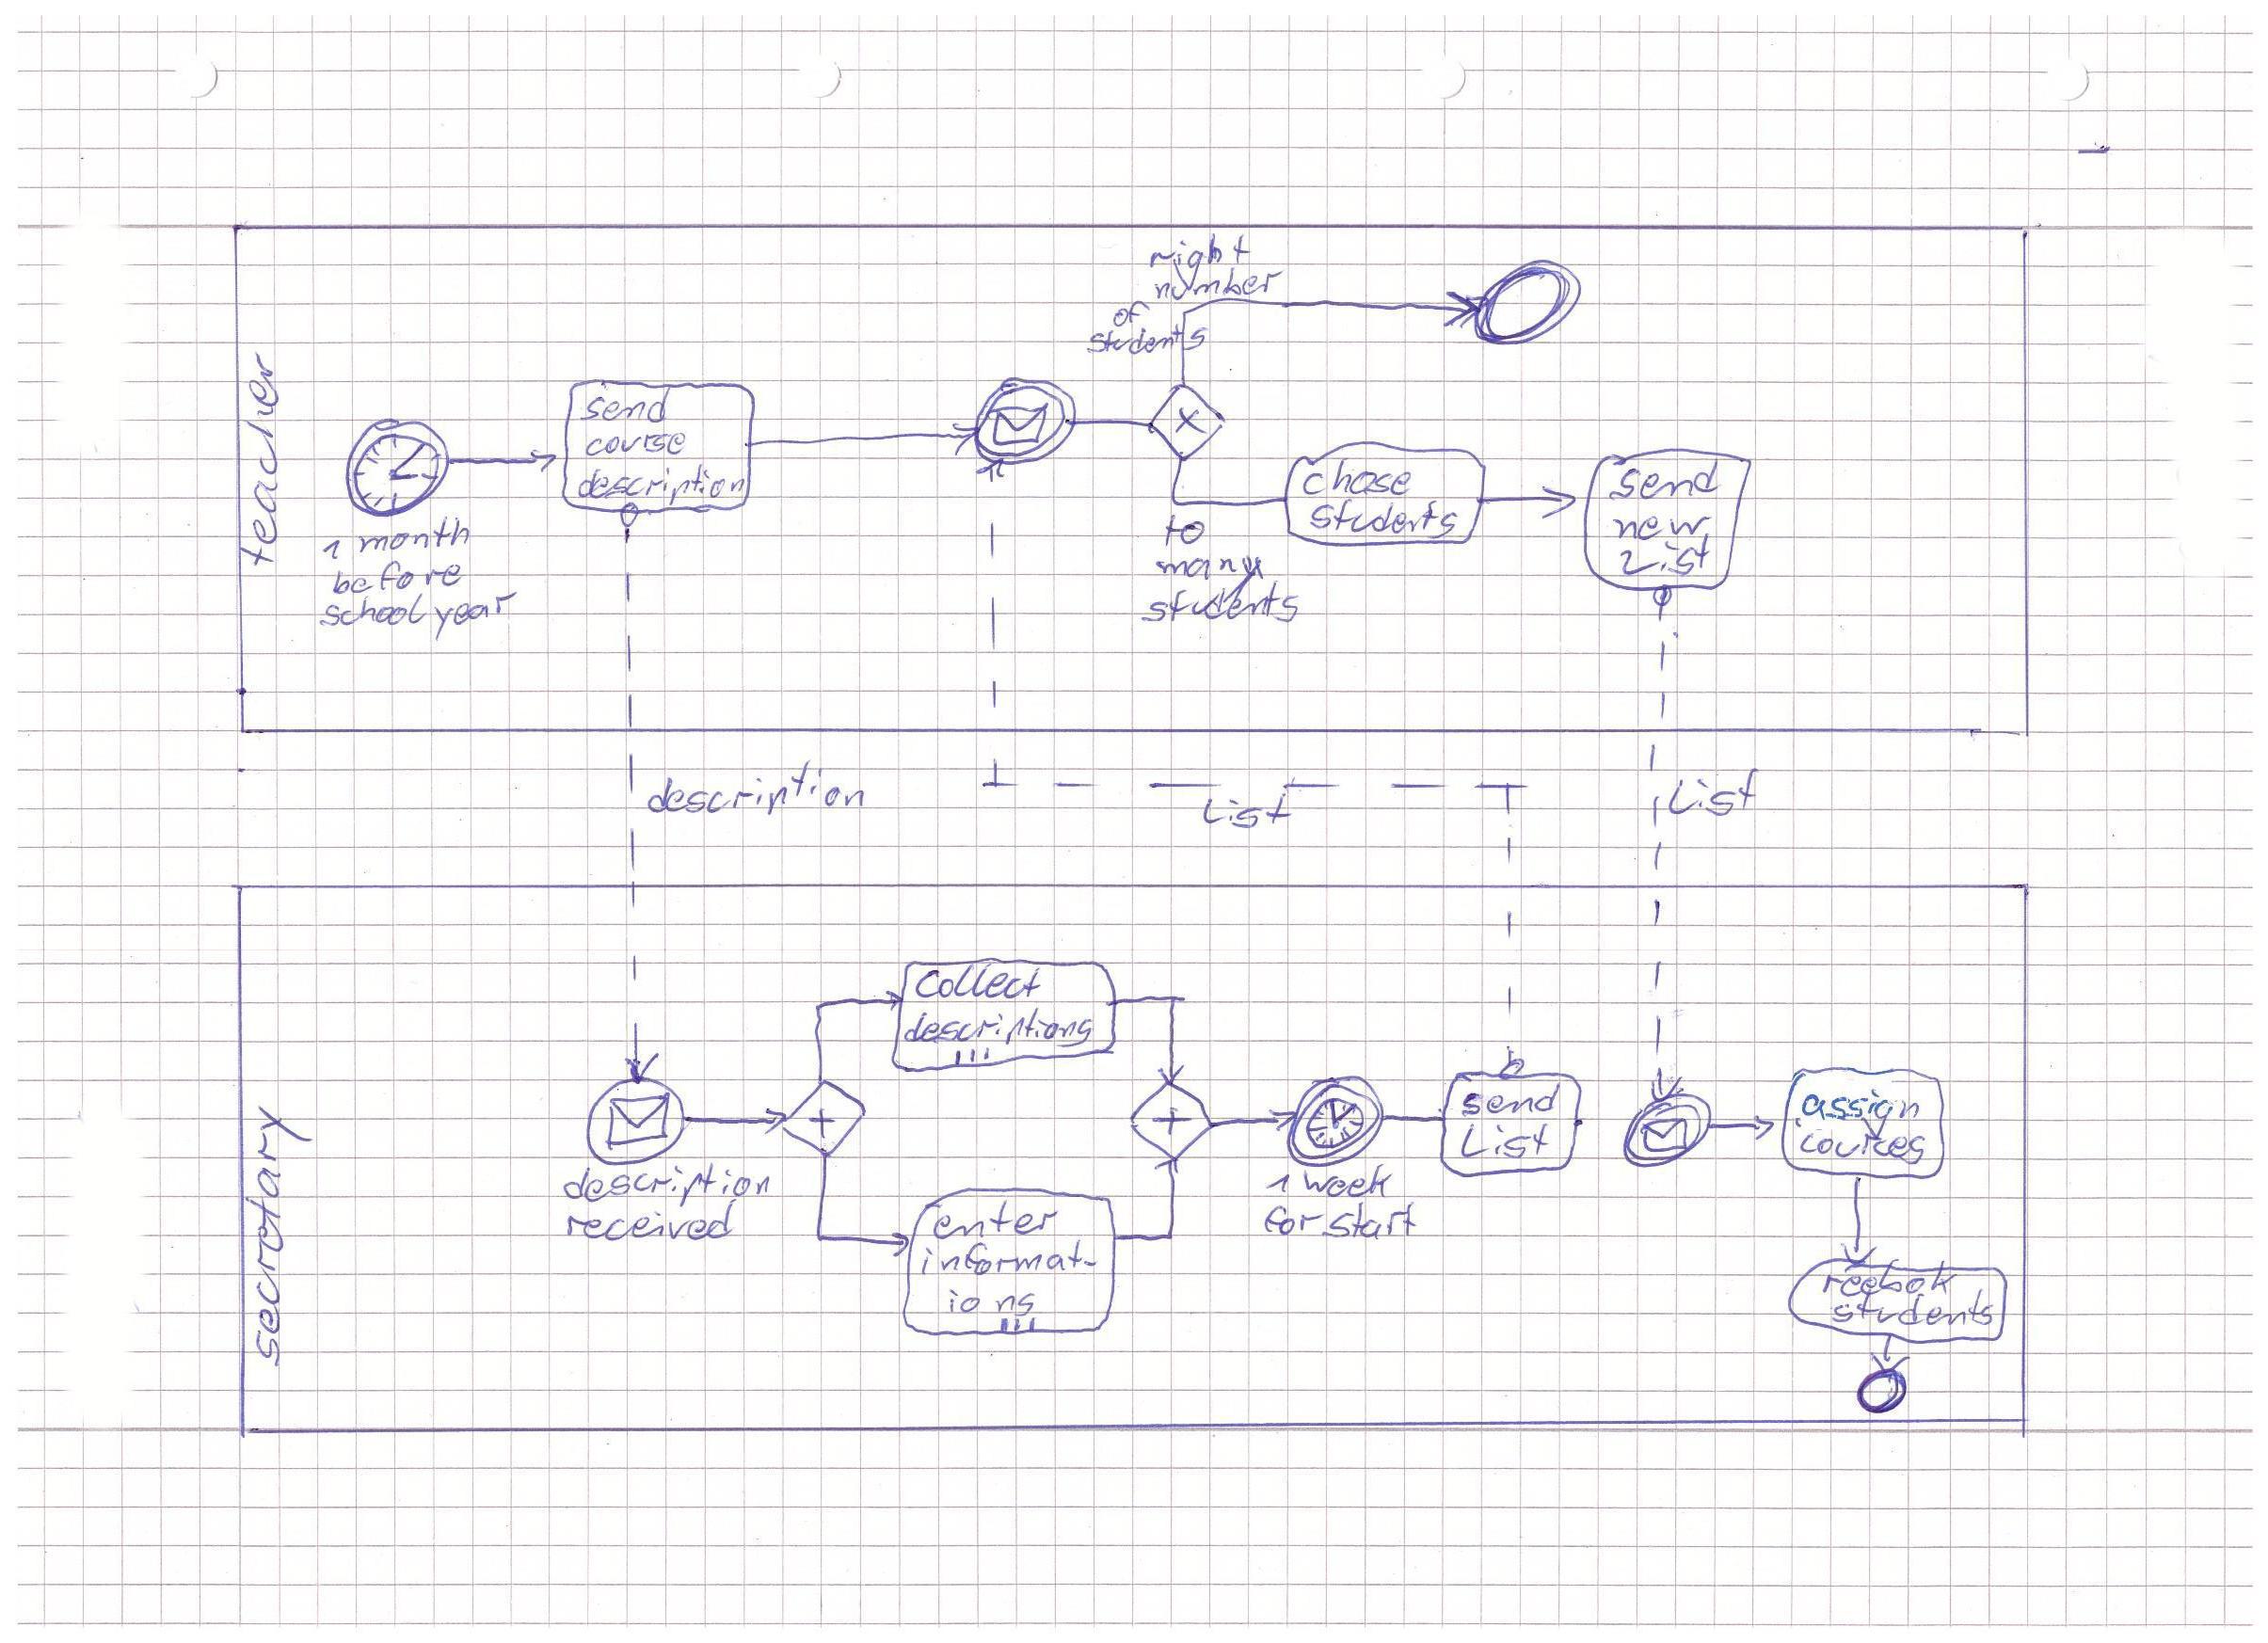 teacher
1 month
before
school year
send
course
description
right
number
of
students
to
many
students
chose
students
send
new
List
description
List
List
secretary
description
received
Collect
descriptions
enter
informat-
ions
1 week
for start
send
List
assign
cources
reebok
students